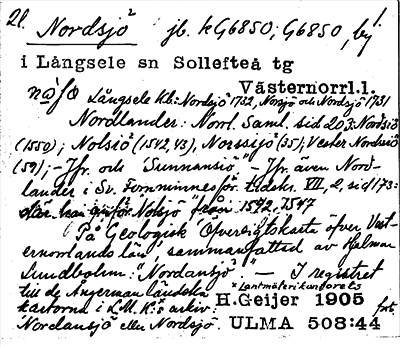 21. Nordsjö² jb. kG6850; G6850, by!
i Långsele sn Sollefteå tg
Västernorrl.l.
Långsele Kb: Nordsjö 1732, Norsjö och Nordsjö 1731
Nordlander: Norrl. Saml. sid 203: Nordsiö
(1550); Nolsiö (1542, 43), Norssiö (35), Vester Nordsiö
(59); - Jfr. och "Sunnansiö" - Jfr. även Nord-
lander i Sv. Fornminnesför. tidskr. VII, 2, sid 173:
där han anför Nolsjö från 1542. 1547
"På Geologisk Översigtskarta öfver Vest-
ernorrlands län", sammanfattad av Hjalmar
Lundbohm: "Nordansjö". - I registret
till de Ångermanländska
x Lantmäterikontorets
H.Geijer 1905
kartorna i L.M.K:s arkiv:
forts.
Nordansjö eller Nordsjö.
ULMA 508:44